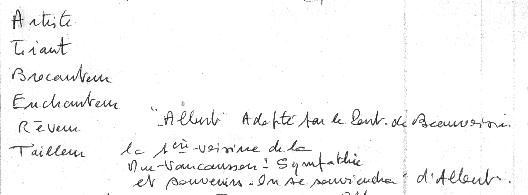 Artiste
Tirant
Brocanteur
Enchanteur
Rêveur "Albert" Adopté par le Cent. de Beauvoisin.
Tailleur la 1ère voisine de la
Rue-Vaucanson! Sympathie
et souvenirs. On se souviendra d'Albert.